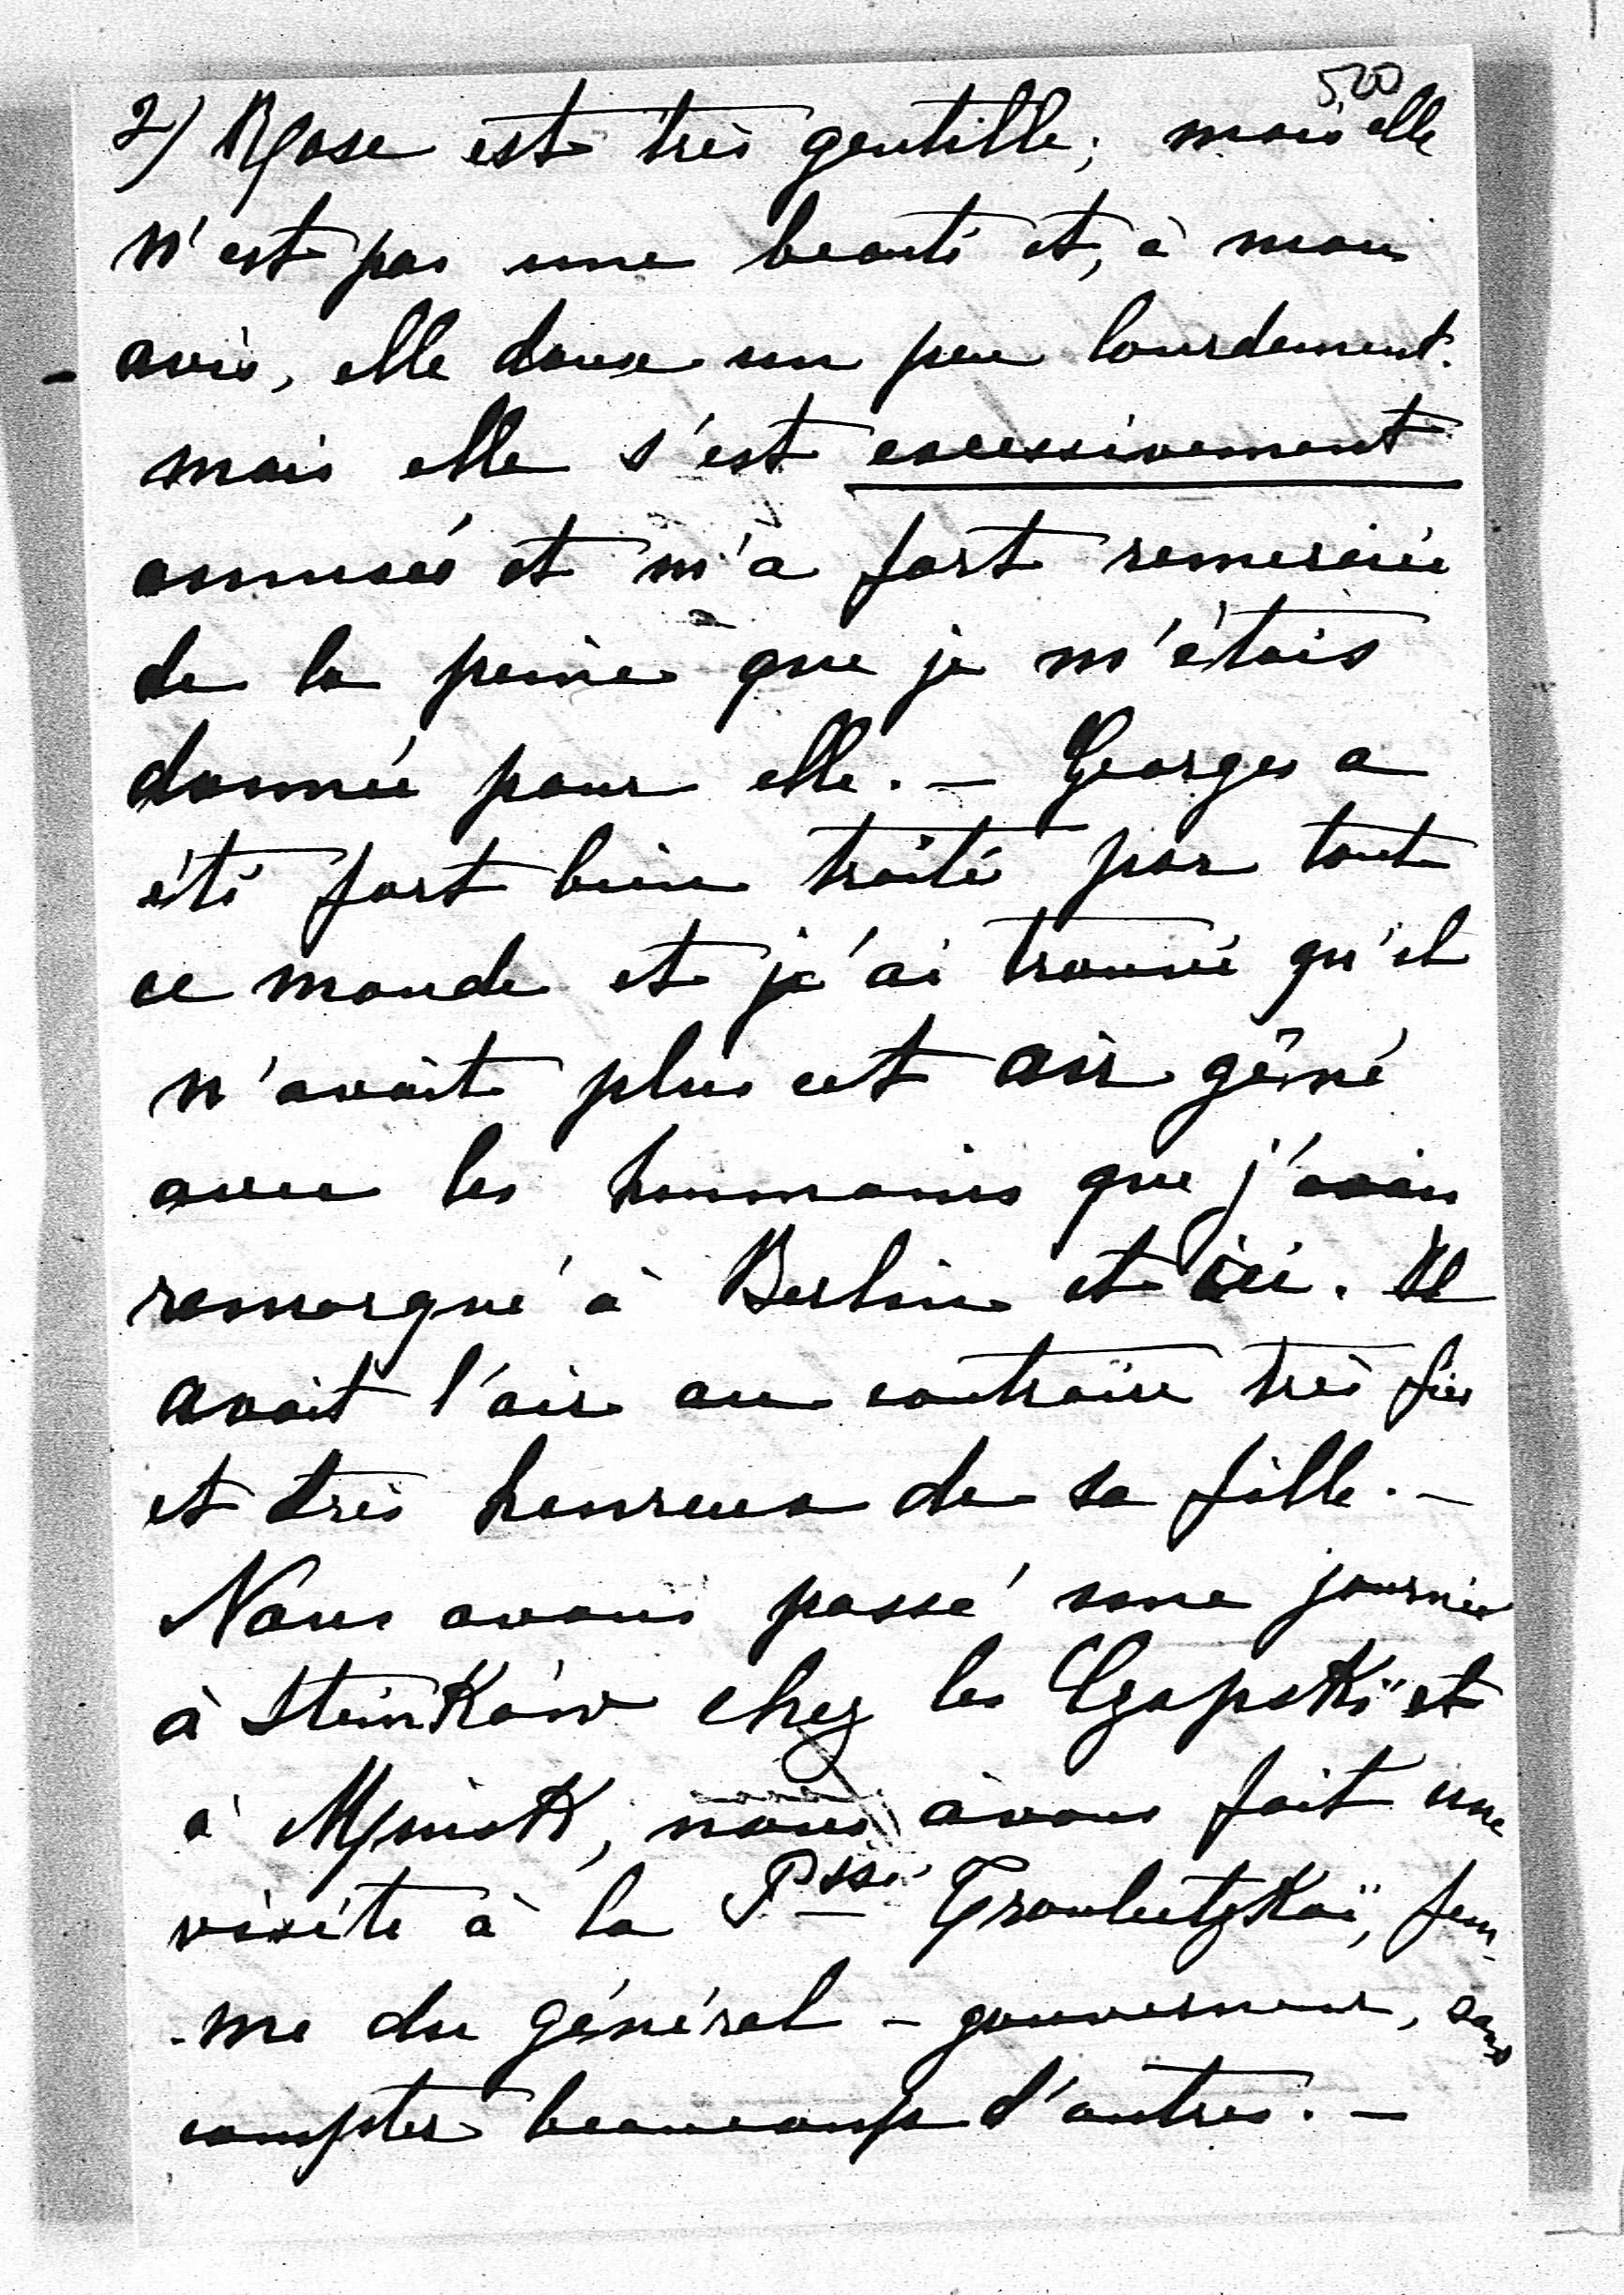 520
2) Rose est très gentille; mais elle
n'est pas une beauté et, à mon
avis, elle danse un peu lourdement.
mais elle s'est excessivement
amusée et m'a fort remerciée
de la peine que je m'étais
donnée pour elle. — Georges a
été fort bien traité par tout
ce monde et j'ai trouvé qu'il
n'avait plus cet air gêné
avec les hommains que j'avais
remarqué à Berlin et ici. Il
avait l'air au contraire très fier
et très heureux de sa fille. —
Nous avons passé une journée
à Stańków chez les Czapski et
à Minsk, nous avons fait une
visite à la Psse Troubetzkoï, fem-
-me du général - gouverneur, sans
compter beaucoup d'autres. —